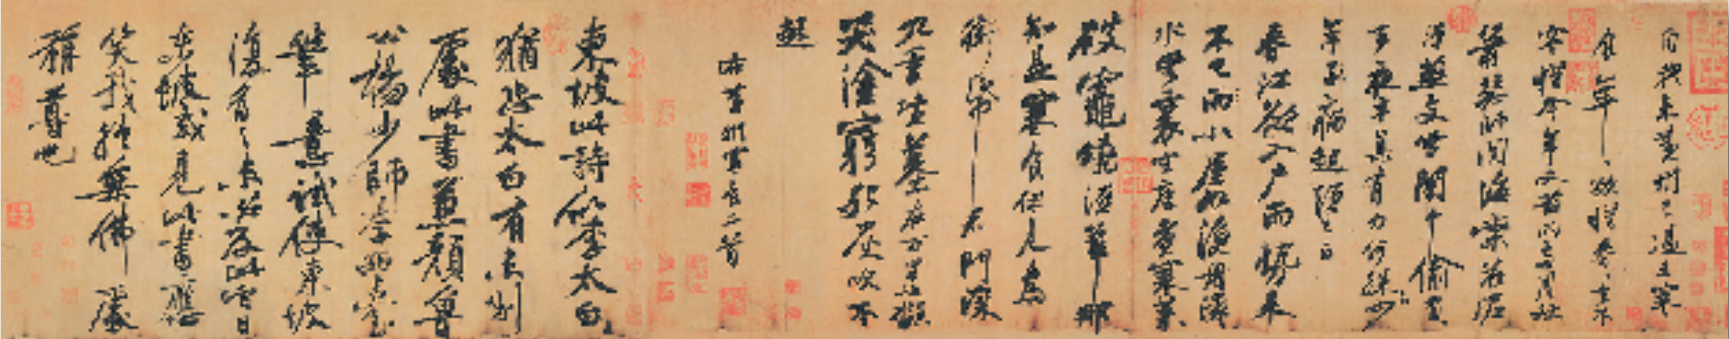 自我來黃州已過三寒
食年年欲惜春春去不
容惜今年又苦雨兩月秋
蕭瑟卧聞海棠花泥
汙燕支雪闇中偷負
去夜半真有力何殊少
年子病起頭已白
春江欲入户雨勢來
不已雨小屋如漁舟濛濛
水雲裏空庖煮寒菜
破竈燒濕葦那
知是寒食但見烏
銜帋君門深
九重墳墓在萬里也擬
哭塗窮死灰吹不
起
右黃州寒食二首
東坡此詩似李太白
猶恐太白有未到
處此書兼顏魯
公楊少師李西臺
筆意試使東坡
復爲之未必及此它日
東坡或見此書應
笑我於無佛處
稱尊也